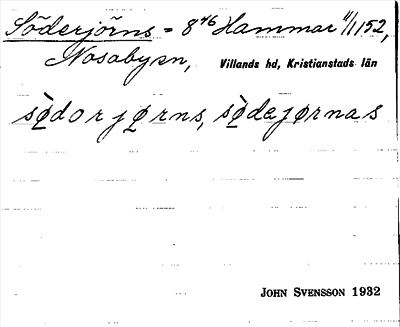 Söderjörns = 8⁴⁶ Hammar 11/1 152,
Nosabysn, Villands hd, Kristianstads län
sø̀dorjørns, sø̀dajørnas
JOHN SVENSSON 1932